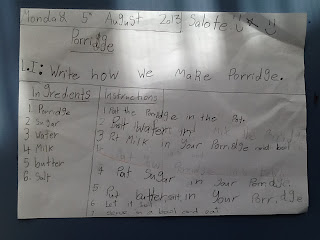 Monday 5th August 2013 Salote
Porridge
L.I: Write how we make Porridge.
Ingredents
1. Porridge
2. Sugar
3. Water
4. Milk
5. butter
6. Salt
Instructions
1 Put the Porridge in the Pot.
2 Put Water in
3 Put Milk in Your Porridge and boil
4 Put Sugar in your Porridge
5 Put butter, salt in your Porridge
6 Let it boil
7 Serve in a bowl and eat